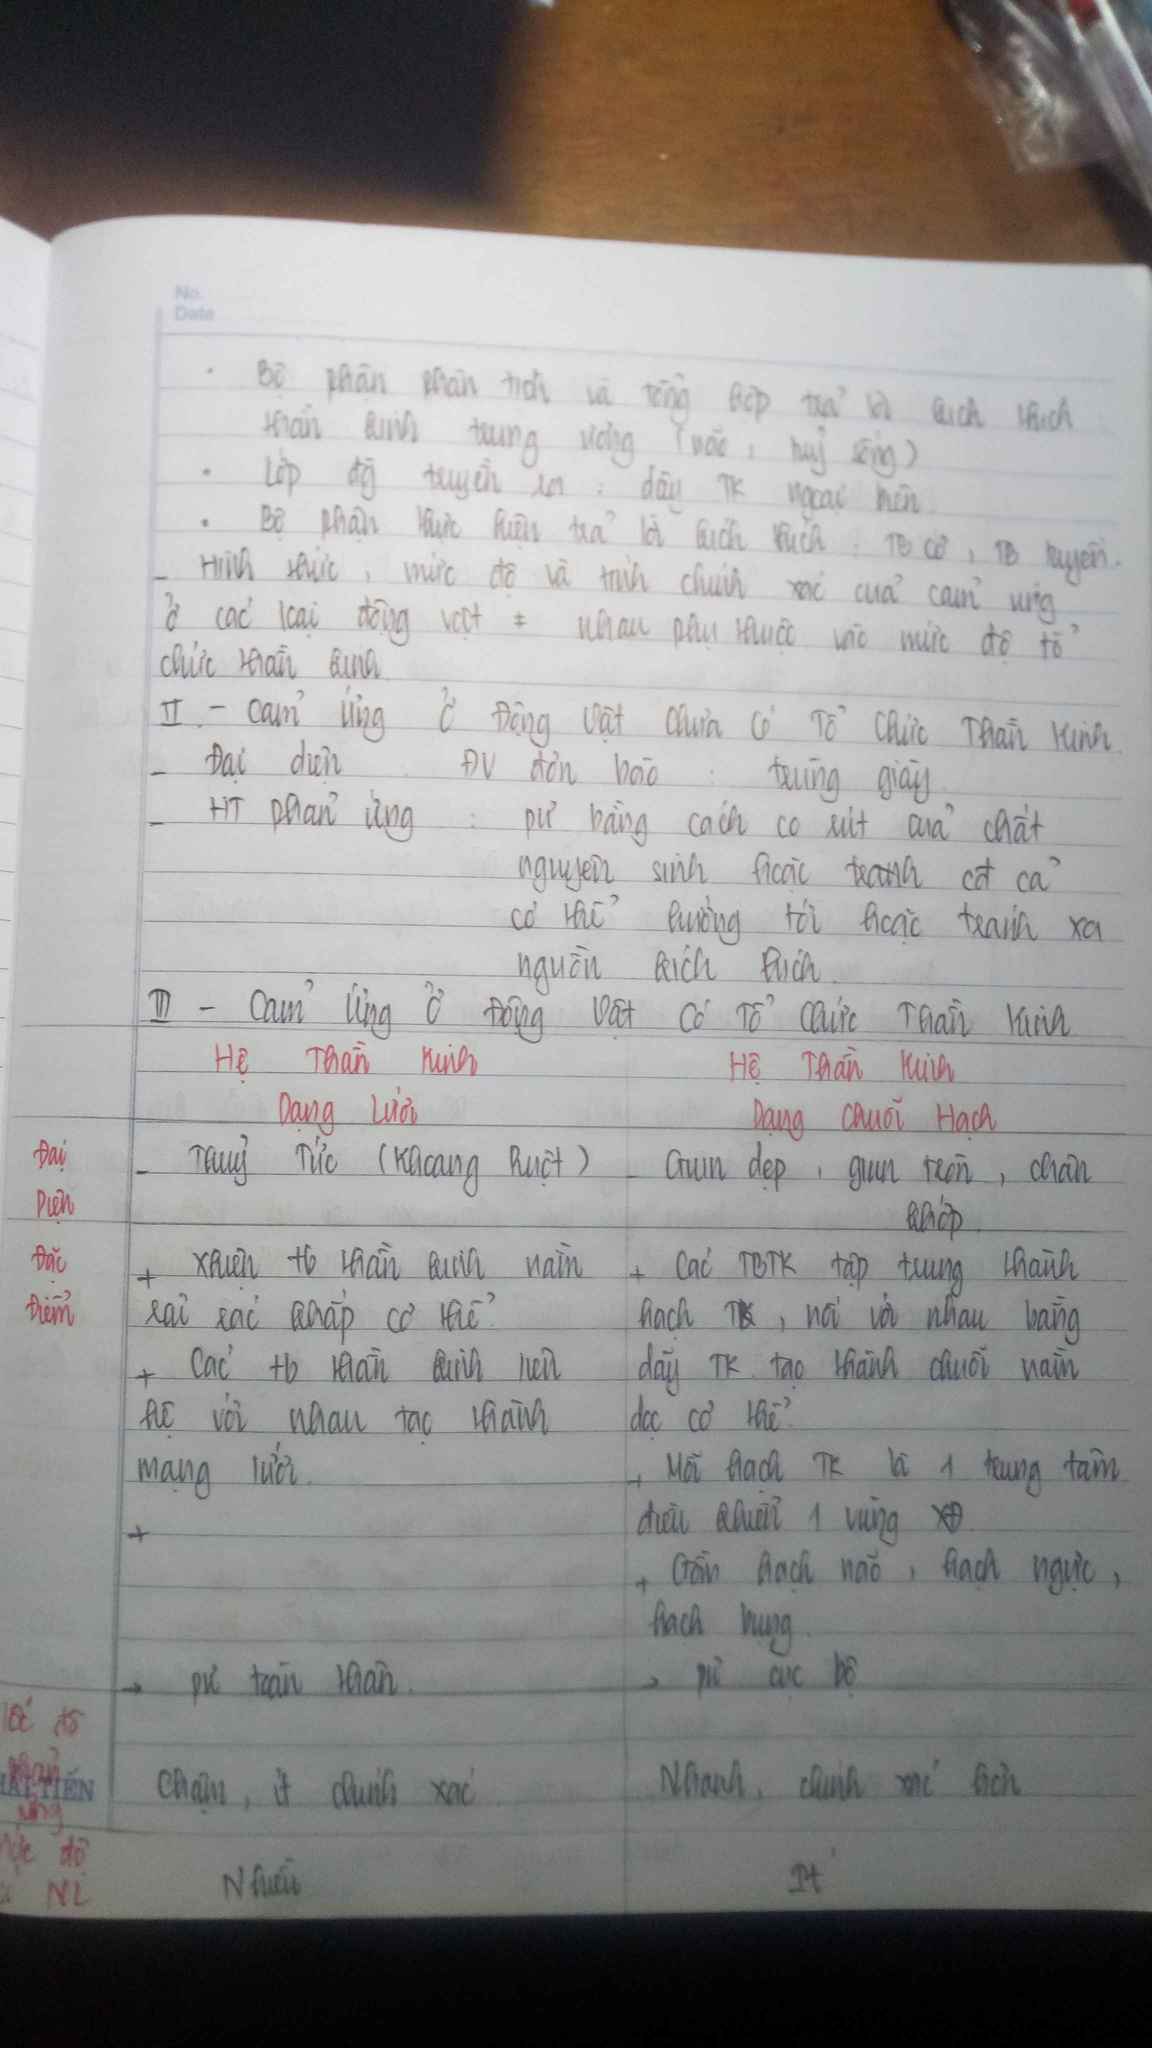 No.
Date
· Bộ phận phân tích và tổng hợp trả lời kích thích
thần kinh trung ương (não, tuỷ sống)
· Lớp đg truyền ra : dây TK ngoại biên
· Bộ phận thực hiện trả lời kích thích : TB cơ, TB tuyến.
- Hình thức, mức độ và tính chính xác của cảm ứng
ở các loại động vật ≠ nhau phụ thuộc vào mức độ tổ
chức thần kinh
II - Cảm Ứng Ở Động Vật Chưa Có Tổ Chức Thần Kinh.
- Đại diện : ĐV đơn bào : trùng giày
- HT phản ứng : pư bằng cách co rút của chất
nguyên sinh hoặc cả
cơ thể hướng tới hoặc tránh xa
nguồn kích thích.
III - Cảm Ứng Ở Động Vật Có Tổ Chức Thần Kinh
Hệ Thần Kinh Hệ Thần Kinh
Dạng Lưới Dạng Chuỗi Hạch
Đại - Thuỷ Tức (Khoang Ruột) - Giun dẹp, giun tròn, chân
Diện khớp
Đặc + tb thần kinh nằm + Các TBTK tập trung thành
Điểm rải rác khắp cơ thể. hạch TK, nối với nhau bằng
+ Các tb thần kinh liên dây TK tạo thành chuỗi nằm
hệ với nhau tạo thành dọc cơ thể.
mạng lưới. + Mỗi hạch TK là 1 trung tâm
+ điều khiển 1 vùng xđ
+ Gồm hạch não, hạch ngực,
hạch bụng.
→ pư toàn thân. → pư cục bộ
tốc độ
phản
HẢI TIẾN Chậm, ít chính xác Nhanh, chính xác hơn
ứng
mức độ
NL Nhiều It